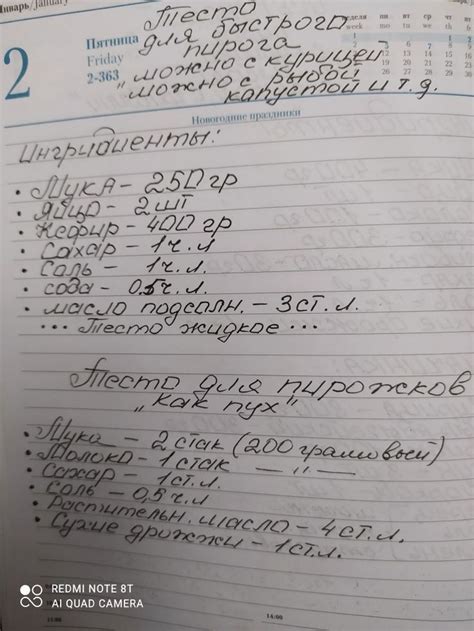 Январь/January
2
Пятница
Friday
2-363
Тесто
для быстрого
пирога
"можно с курицей
"можно с рыбой
капустой и т.д.
Новогодние праздники
Ингридиенты:
• Мука – 250 гр
• Яйцо – 2 шт
• Кефир – 400 гр
• Сахар – 1 ч.л
• Соль – 1 ч.л.
• сода – 0,5 ч.л.
• масло подсолн. – 3 ст.л.
... Тесто жидкое ...
Тесто для пирожков
"как пух"
• Мука – 2 стак (200 грамовый)
• Молоко – 1 стак — " —
• Сахар – 1 ст.л.
• Соль – 0,5 ч.л
• Растительн. масло – 4 ст.л.
• Сухие дрожжи – 1 ст.л.
REDMI NOTE 8T
AI QUAD CAMERA
14:00